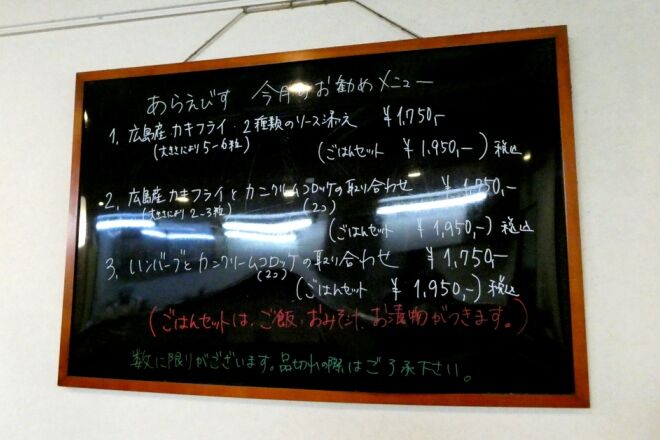 あらえびす 今月のお勧めメニュー
1. 広島産カキフライ・2種類のソース添え ￥1,750,-
(大きさにより5-6粒)
(ごはんセット ￥1,950,-) 税込
2. 広島産カキフライとカニクリームコロッケの取り合わせ ￥1,750,-
(大きさにより 2-3粒) (2コ)
(ごはんセット ￥1,950,-) 税込
3. ハンバーグとカニクリームコロッケの取り合わせ ￥1,750,-
(2コ)
(ごはんセット ￥1,950,-) 税込
(ごはんセットは、ご飯、おみそ汁、お漬物がつきます。)
数に限りがございます。品切れの際はご了承下さい。